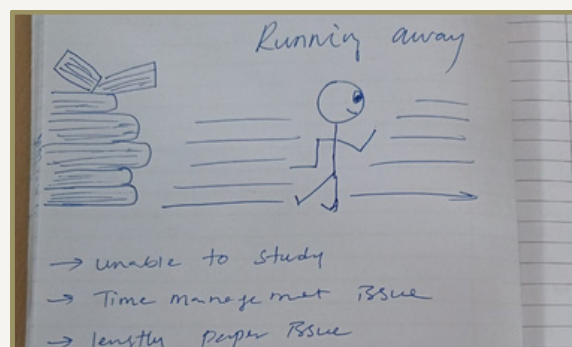 Running away
→ unable to study
→ Time managemet Issue
→ lengtly paper Issue